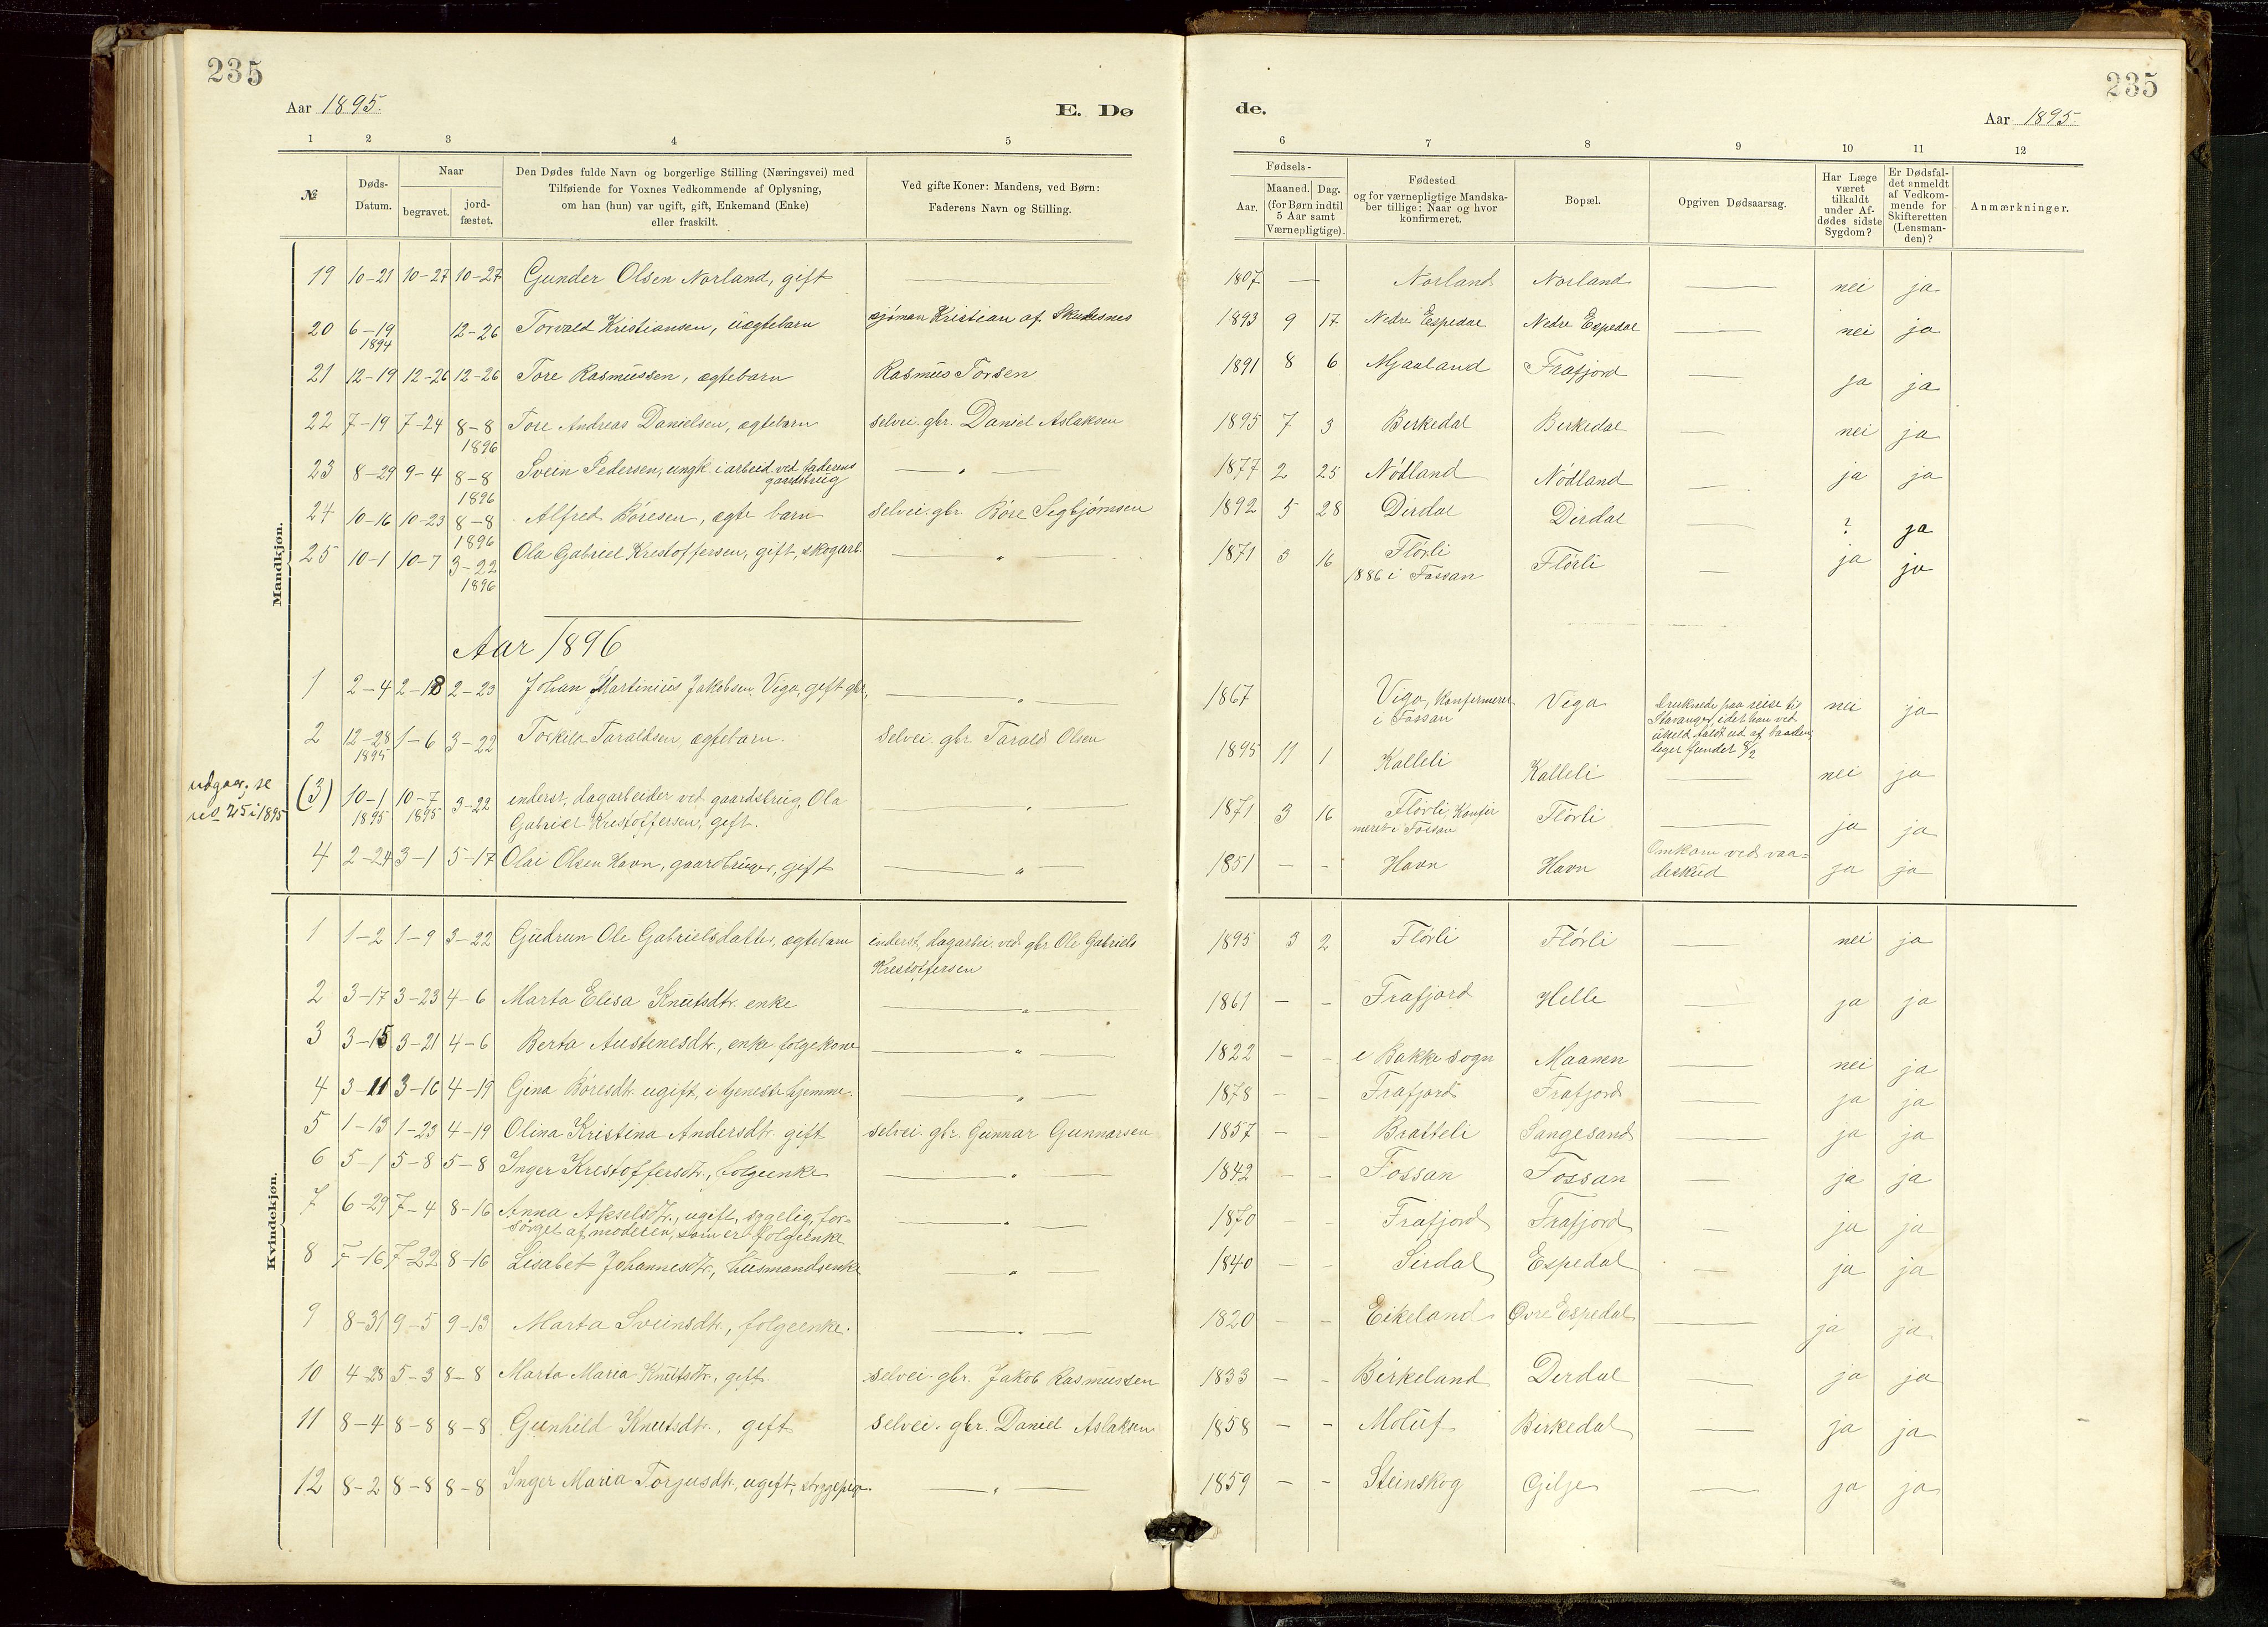 235
235
Aar 1895.
E. Dø
de.
Aar 1895.
1 2 3 4 5
6 7 8 9 10 11 12
№
Døds-Datum.
Naar
begravet.
jord-fæstet.
Den Dødes fulde Navn og borgerlige Stilling (Næringsvei) med
Tilføiende for Voxnes Vedkommende af Oplysning,
om han (hun) var ugift, gift, Enkemand (Enke)
eller fraskilt.
Ved gifte Koner: Mandens, ved Børn:
Faderens Navn og Stilling.
Fødsels-
Aar.
Maaned. Dag.
(for Børn indtil
5 Aar samt
Værnepligtige).
Fødested
og for værnepligtige Mandska-
ber tillige: Naar og hvor
konfirmeret.
Bopæl.
Opgiven Dødsaarsag.
Har Læge
været
tilkaldt
under Af-
dødes sidste
Sygdom?
Er Dødsfal-
det anmeldt
af Vedkom-
mende for
Skifteretten
(Lensman-
den)?
Anmærkninger.
Mandkjøn.
19 10-21 10-27 10-27 Gunder Olsen Norland, gift — 1807 — Norland Norland — nei ja
20 6-19 1894 12-26 Torvald Kristiansen, uægtebarn sjøman Kristian af Skudesnes 1893 9 17 Nedre Espedal Nedre Espedal — nei ja
21 12-19 12-26 12-26 Tore Rasmussen, ægtebarn Rasmus Torsen 1891 8 6 Mjaaland Frafjord — ja ja
22 7-19 7-24 8-8 1896 Tore Andreas Danielsen, ægtebarn selvei. gbr. Daniel Aslaksen 1895 7 3 Birkedal Birkedal — nei ja
23 8-29 9-4 8-8 1896 Svein Pedersen, ungk. i arbeid ved faderens gaardsbrug — " 1877 2 25 Nødland Nødland — ja ja
24 10-16 10-23 8-8 1896 Alfred Børesen, ægte barn selvei. gbr. Børe Sigbjørnsen 1892 5 28 Dirdal Dirdal — ? ja
25 10-1 10-7 3-22 1896 Ola Gabriel Krestoffersen, gift, skogarb. — " — 1871 3 16 Flørli 1886 i Fossan Flørli — ja ja
Aar 1896
1 2-4 2-18 2-23 Johan Martinius Jakobsen Viga, gift gbr, — " — 1867 Viga, Konfirmeret i Fossan Viga Druknede paa reise til Stavanger, idet han ved uheld faldt ud af baaden, leget fundet 8/2 nei ja
2 12-28 1895 1-6 3-22 Torkild Taraldsen, ægtebarn. selvei. gbr Tarald Olsen 1895 11 1 Kalleli Kalleli — nei ja
udgaar, se no 25 i 1895
(3) 10-1 1895 10-7 1895 3-22 inderst, dagarbeider ved gaardsbrug, Ola Gabriel Krestoffersen, gift. — " — 1871 3 16 Flørli, Konfirmeret i Fossan Flørli — ja ja
4 2-24 3-1 5-17 Olai Olsen Havn, gaardbruger, gift — " — 1851 - - Havn Havn Omkom ved vaa=deskud ja ja
Kvindekjøn.
1 1-2 1-9 3-22 Gudrun Ole Gabrielsdatter, ægtebarn inderst, dagarbei. ved gbr Ole Gabriels Krestoffersen 1895 3 2 Flørli Flørli — nei ja
2 3-17 3-23 4-6 Marta Elisa Knutsdtr. enke — " — 1861 - - Frafjord Helle — ja ja
3 3-15 3-21 4-6 Berta Austensdtr., enke folgekone — " — 1822 - - i Bakke sogn Maanen — nei ja
4 3-11 3-16 4-19 Gina Børesdtr. ugift, i tjeneste hjemme. — " — 1878 - - Frafjord Frafjord — ja ja
5 1-13 1-23 4-19 Olina Kristina Andersdtr. gift selvei. gbr. Gunnar Gunnarsen 1857 - - Bratteli Sangesand — ja ja
6 5-1 5-8 5-8 Inger Krestoffersdtr., folgeenke — " — 1842 - - Fossan Fossan — ja ja
7 6-29 7-4 8-16 Anna Akselsdtr., ugift, sygelig, for=sørget af moderen, som er folgeenke — " — 1870 - Frafjord Frafjord — ja ja
8 7-16 7-22 8-16 Lisabet Johannesdtr., husmandsenke — " — 1840 - - Sirdal Espedal — ja ja
9 8-31 9-5 9-13 Marta Sveinsdtr., folgeenke. — " — 1820 - - Eikeland Øvre Espedal — ja ja
10 4-28 5-3 8-8 Marta Maria Knutsdtr., gift selvei. gbr. Jakob Rasmussen 1833 - - Birkeland Dirdal — ja ja
11 8-4 8-8 8-8 Gunhild Knutsdtr., gift selvei. gbr. Daniel Aslaksen 1858 - - Moluf Birkedal — ja ja
12 8-2 8-8 8-8 Inger Maria Torjusdtr., ugift, — " — 1859 - - Steinskog Gilje — ja ja